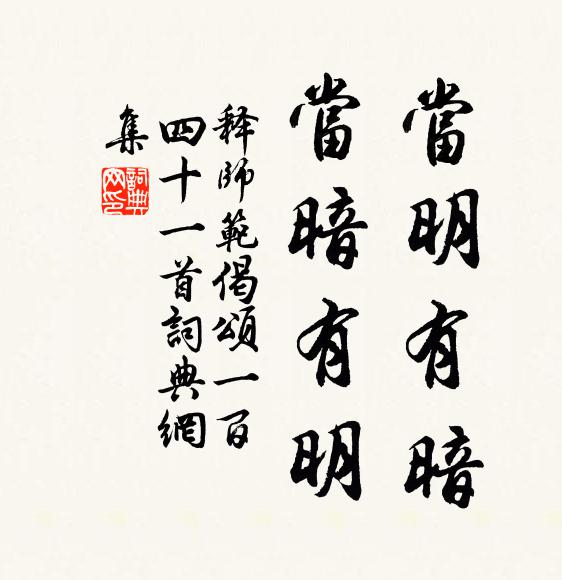 當明有暗
當暗有明
释師範偈頌一百
四十一首詞典網
集
詞典
网印